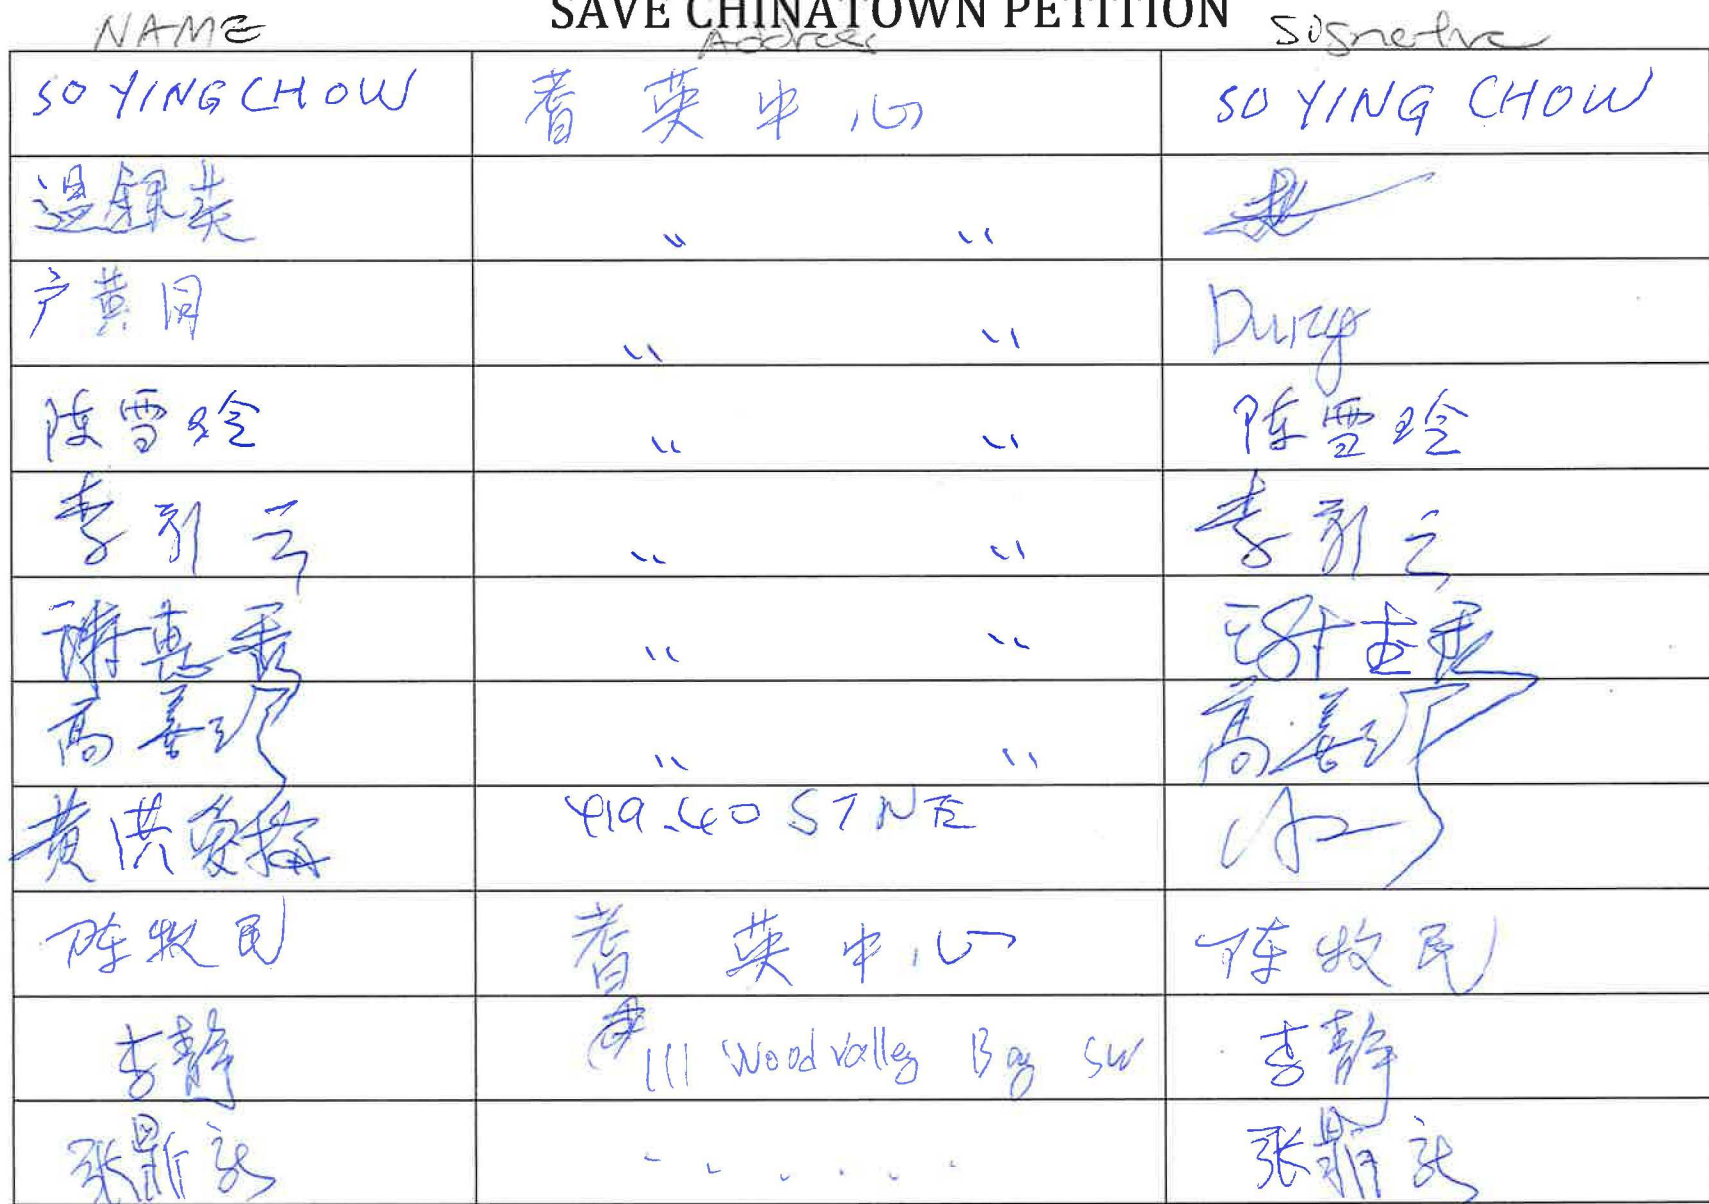 SAVE CHINATOWN PETITION
NAME Address Signature
SO YING CHOW 耆英中心 SO YING CHOW
温銀英 〃 〃
卢黄同 〃 〃
陈雪玲 〃 〃 陈雪玲
李引云 〃 〃 李引云
謝惠 〃 〃
高善 〃 〃 高善
黄洪 419.40 ST NE
陈牧民 耆英中心 陈牧民
李静 111 Woodvalley Bay SW 李静
张鼎 张鼎